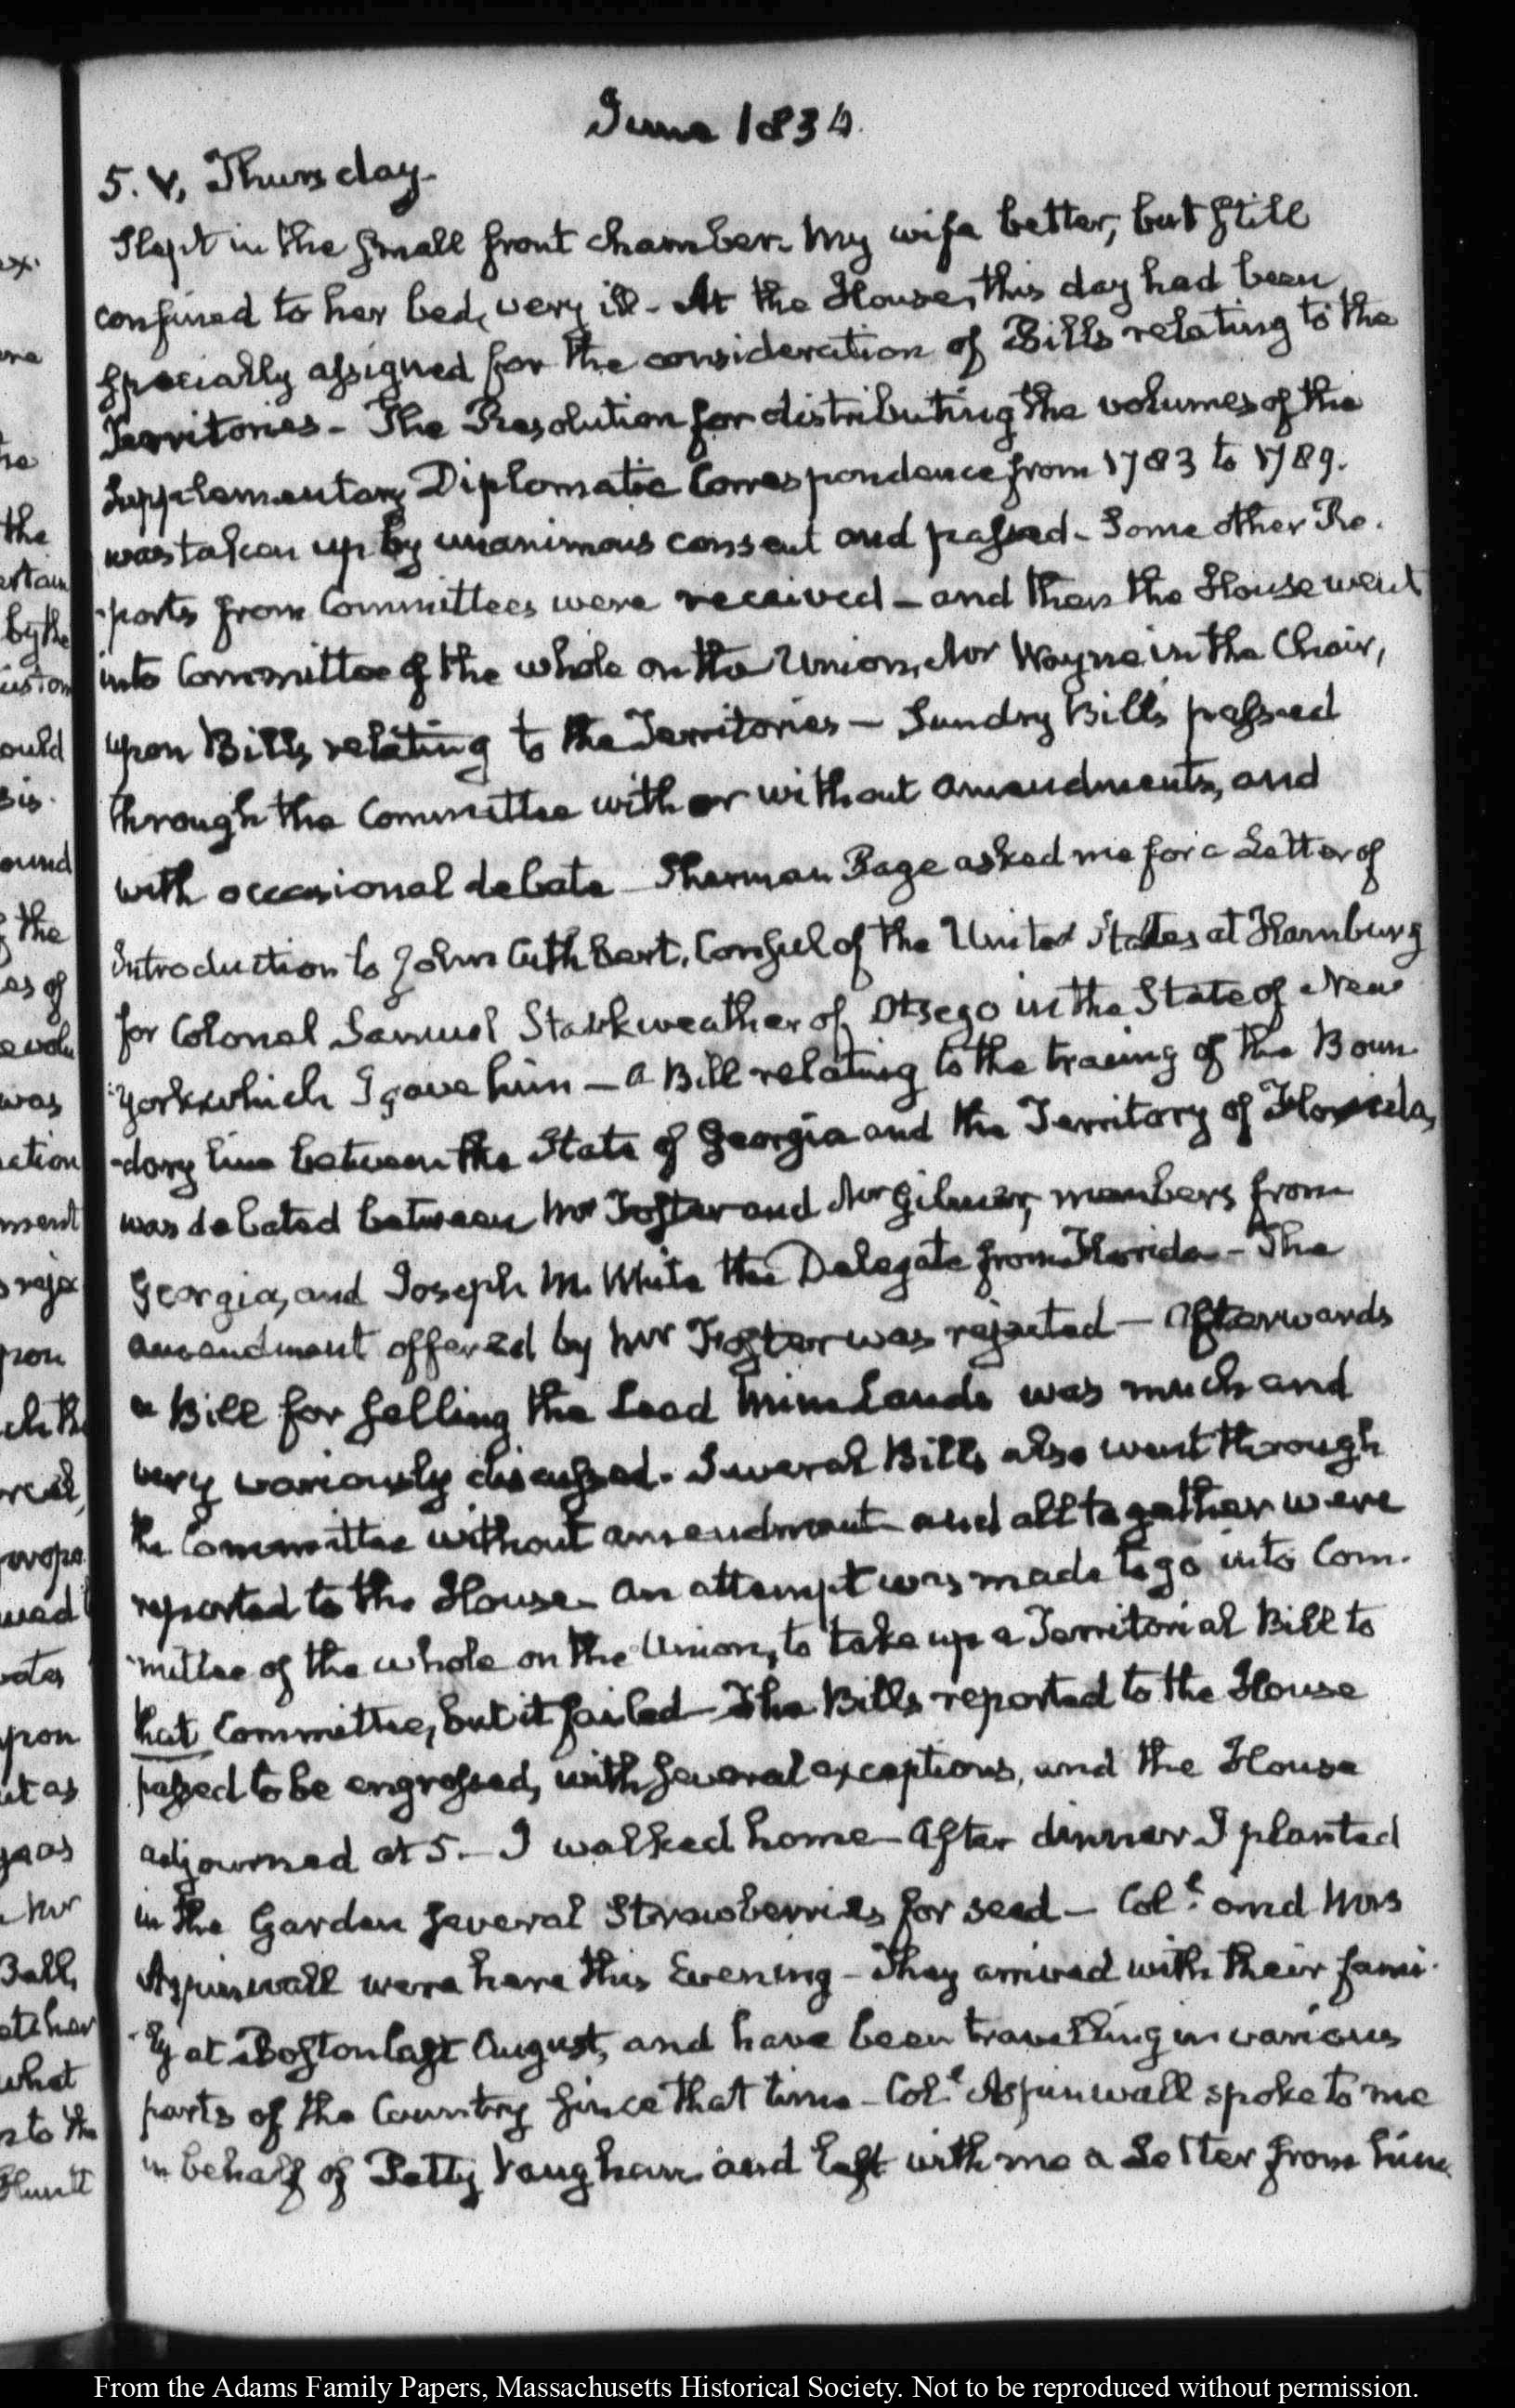 June 1834.
5. V. Thursday.
Slept in the small front chamber. My wife better, but still
confined to her bed, very ill - At the House, this day had been
specially assigned for the consideration of Bills relating to the
Territories - The Resolution for distributing the volumes of the
Supplementary Diplomatic Correspondence from 1783 to 1789.
was taken up by unanimous consent and passed - Some other Re-
-ports from Committees were received - and then the House went
into Committee of the whole on the Union, Mr Wayne in the Chair,
upon Bills relating to the Territories - Sundry Bills passed
through the Committee with or without amendments, and
with occasional debate - Sherman Page asked me for a Letter of
Introduction to John Cuthbert, Consul of the United States at Hamburg
for Colonel Samuel Starkweather of Otsego in the State of New
York which I gave him - a Bill relating to the tracing of the Boun-
-dary line between the State of Georgia and the Territory of Florida,
was debated between Mr Foster and Mr Gilmer, members from
Georgia, and Joseph M. White the Delegate from Florida - The
amendment offered by Mr Foster was rejected - Afterwards
a Bill for selling the Lead Mine Lands was much and
very variously discussed. Several Bills also went through
the Committee without amendment and all together were
reported to the House. An attempt was made to go into Com-
-mittee of the whole on the Union, to take up a Territorial Bill to
that Committee, but it failed - The Bills reported to the House
passed to be engrossed, with several exceptions, and the House
adjourned at 5. - I walked home - After dinner I planted
in the Garden several Strawberries for seed - Coll. and Mrs
Aspinwall were here this Evening - They arrived with their fami-
-ly at Boston last August, and have been travelling in various
parts of the Country since that time - Coll. Aspinwall spoke to me
in behalf of Petty Vaughan and left with me a Letter from him.
the
by the
ould
ound
the
as of
was
ation
ment
pon
upon
it as
Mr
Ball,
what
From the Adams Family Papers, Massachusetts Historical Society. Not to be reproduced without permission.